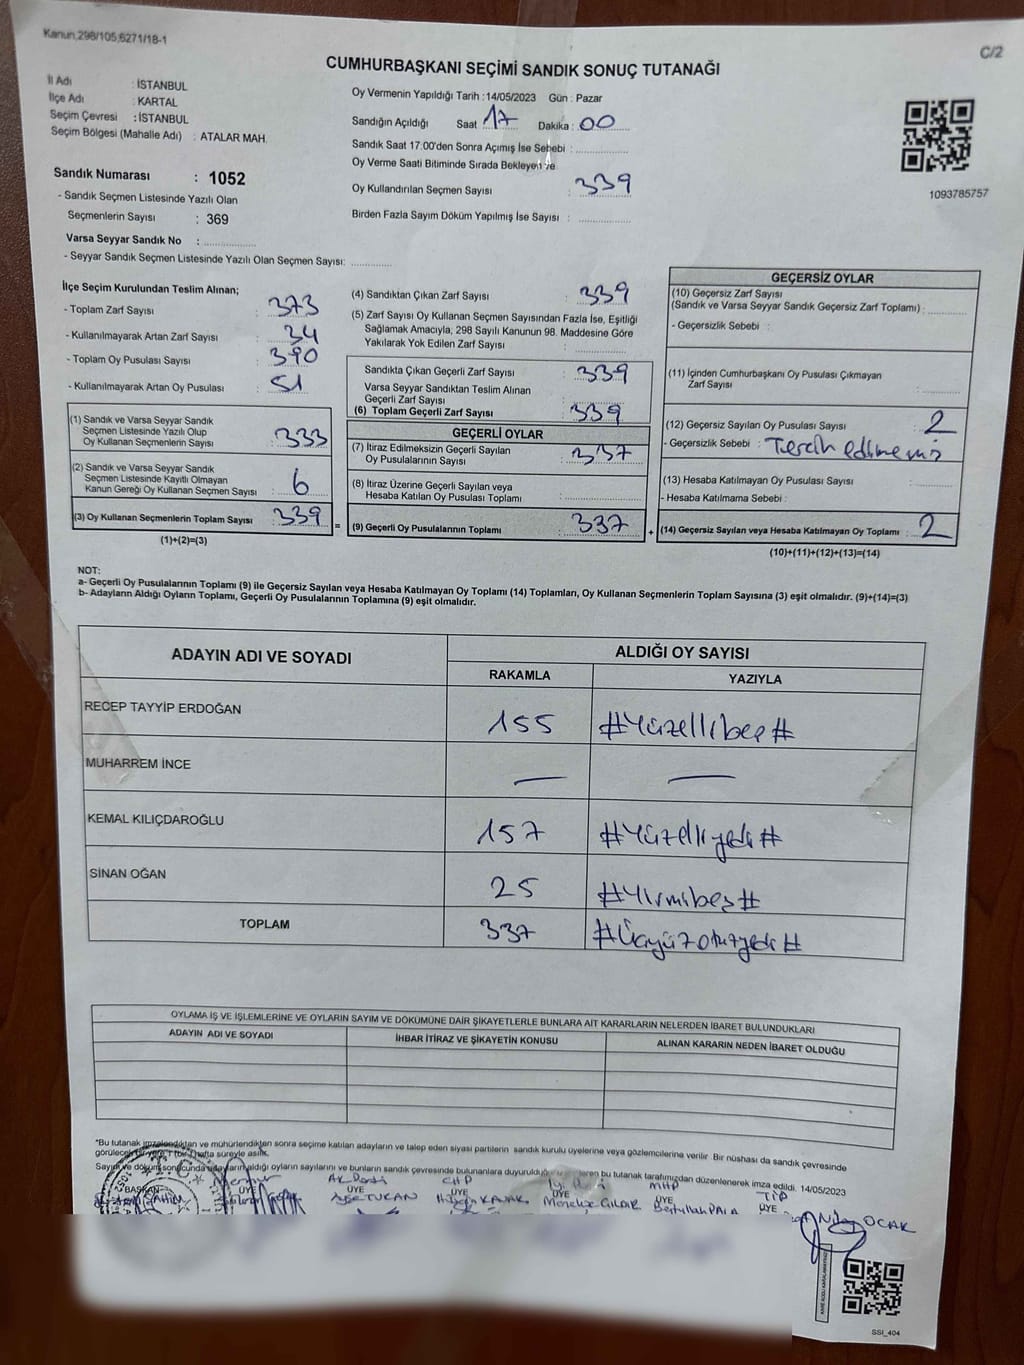 Kanun,298/105,6271/18-1
C/2
CUMHURBAŞKANI SEÇİMİ SANDIK SONUÇ TUTANAĞI
İl Adı : İSTANBUL
İlçe Adı : KARTAL
Seçim Çevresi : İSTANBUL
Seçim Bölgesi (Mahalle Adı) : ATALAR MAH.
Sandık Numarası : 1052
- Sandık Seçmen Listesinde Yazılı Olan
Seçmenlerin Sayısı : 369
Varsa Seyyar Sandık No :
- Seyyar Sandık Seçmen Listesinde Yazılı Olan Seçmen Sayısı:
Oy Vermenin Yapıldığı Tarih :14/05/2023 Gün : Pazar
Sandığın Açıldığı Saat 17 Dakika : 00
Sandık Saat 17.00'den Sonra Açımış İse Sebebi :
Oy Verme Saati Bitiminde Sırada Bekleyen ve
Oy Kullandırılan Seçmen Sayısı : 339
Birden Fazla Sayım Döküm Yapılmış İse Sayısı :
1093785757
İlçe Seçim Kurulundan Teslim Alınan;
- Toplam Zarf Sayısı : 373
- Kullanılmayarak Artan Zarf Sayısı : 34
- Toplam Oy Pusulası Sayısı : 390
- Kullanılmayarak Artan Oy Pusulası : 51
(1) Sandık ve Varsa Seyyar Sandık
Seçmen Listesinde Yazılı Olup
Oy Kullanan Seçmenlerin Sayısı : 333
(2) Sandık ve Varsa Seyyar Sandık
Seçmen Listesinde Kayıtlı Olmayan
Kanun Gereği Oy Kullanan Seçmen Sayısı : 6
(3) Oy Kullanan Seçmenlerin Toplam Sayısı : 339 =
(1)+(2)=(3)
(4) Sandıktan Çıkan Zarf Sayısı : 339
(5) Zarf Sayısı Oy Kullanan Seçmen Sayısından Fazla İse, Eşitliği
Sağlamak Amacıyla, 298 Sayılı Kanunun 98. Maddesine Göre
Yakılarak Yok Edilen Zarf Sayısı :
Sandıkta Çıkan Geçerli Zarf Sayısı : 339
Varsa Seyyar Sandıktan Teslim Alınan
Geçerli Zarf Sayısı :
(6) Toplam Geçerli Zarf Sayısı : 339
GEÇERLİ OYLAR
(7) İtiraz Edilmeksizin Geçerli Sayılan
Oy Pusulalarının Sayısı : 337
(8) İtiraz Üzerine Geçerli Sayılan veya
Hesaba Katılan Oy Pusulası Toplamı :
(9) Geçerli Oy Pusulalarının Toplamı : 337 +
GEÇERSİZ OYLAR
(10) Geçersiz Zarf Sayısı
(Sandık ve Varsa Seyyar Sandık Geçersiz Zarf Toplamı) :
- Geçersizlik Sebebi :
(11) İçinden Cumhurbaşkanı Oy Pusulası Çıkmayan
Zarf Sayısı :
(12) Geçersiz Sayılan Oy Pusulası Sayısı : 2
- Geçersizlik Sebebi : Tercih edilmemiş
(13) Hesaba Katılmayan Oy Pusulası Sayısı :
- Hesaba Katılmama Sebebi :
(14) Geçersiz Sayılan veya Hesaba Katılmayan Oy Toplamı : 2
(10)+(11)+(12)+(13)=(14)
NOT:
a- Geçerli Oy Pusulalarının Toplamı (9) ile Geçersiz Sayılan veya Hesaba Katılmayan Oy Toplamı (14) Toplamları, Oy Kullanan Seçmenlerin Toplam Sayısına (3) eşit olmalıdır. (9)+(14)=(3)
b- Adayların Aldığı Oyların Toplamı, Geçerli Oy Pusulalarının Toplamına (9) eşit olmalıdır.
ADAYIN ADI VE SOYADI ALDIĞI OY SAYISI
RAKAMLA YAZIYLA
RECEP TAYYİP ERDOĞAN 155 #Yüzellibeş#
MUHARREM İNCE — —
KEMAL KILIÇDAROĞLU 157 #Yüzelliyedi#
SİNAN OĞAN 25 #Yirmibeş#
TOPLAM 337 #Üçyüzotuzyedi#
OYLAMA İŞ VE İŞLEMLERİNE VE OYLARIN SAYIM VE DÖKÜMÜNE DAİR ŞİKAYETLERLE BUNLARA AİT KARARLARIN NELERDEN İBARET BULUNDUKLARI
ADAYIN ADI VE SOYADI İHBAR İTİRAZ VE ŞİKAYETİN KONUSU ALINAN KARARIN NEDEN İBARET OLDUĞU
*Bu tutanak imzalandıktan ve mühürlendikten sonra seçime katılan adayların ve talep eden siyasi partilerin sandık kurulu üyelerine veya gözlemcilerine verilir. Bir nüshası da sandık çevresinde
görülecek bir yere 1 (bir) hafta süreyle asılır.
Sayım ve döküm sonucunda adayların aldığı oyların sayılarını ve bunların sandık çevresinde bulunanlara duyurulduğunu bu tutanak tarafımızdan düzenlenerek imza edildi. 14/05/2023
T.C.
BAŞKAN
Ak Parti CHP İyi Parti MHP TİP
ÜYE ÜYE ÜYE ÜYE ÜYE
Nilay OCAK
SSI_404